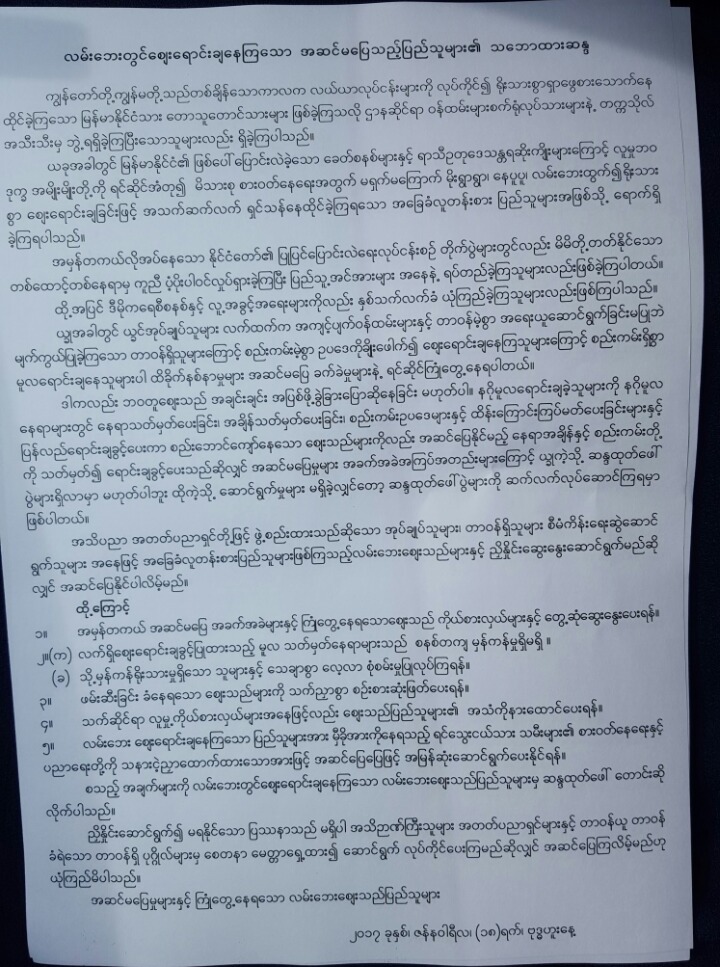 လမ်းဘေးတွင်ဈေးရောင်းချနေကြသော အဆင်မပြေသည့်ပြည်သူများ၏ သဘောထားဆန္ဒ
ကျွန်တော်တို့ကျွန်မတို့သည်တစ်ချိန်သောကာလက လယ်ယာလုပ်ငန်းများကို လုပ်ကိုင်၍ ရိုးသားစွာရှာဖွေစားသောက်နေ
ထိုင်ခဲ့ကြသော မြန်မာနိုင်ငံသား တောသူတောင်သားများ ဖြစ်ခဲ့ကြသလို ဌာနဆိုင်ရာ ဝန်ထမ်းများစက်ရုံလုပ်သားများနဲ့ တက္ကသိုလ်
အသီးသီးမှ ဘွဲ့ရရှိခဲ့ကြပြီးသောသူများလည်း ရှိခဲ့ကြပါသည်။
ယခုအခါတွင် မြန်မာနိုင်ငံ၏ ဖြစ်ပေါ်ပြောင်းလဲခဲ့သော ခေတ်စနစ်များနှင့် ရာသီဥတုဒေသန္တရဆိုးကျိုးများကြောင့် လူမှုဘဝ
ဒုက္ခ အမျိုးမျိုးတို့ကို ရင်ဆိုင်အံတု၍ မိသားစု စားဝတ်နေရေးအတွက် မရှက်မကြောက် မိုးရွာရွာ၊ နေပူပူ၊ လမ်းဘေးထွက်၍ရိုးသား
စွာ ဈေးရောင်းချခြင်းဖြင့် အသက်ဆက်လက် ရှင်သန်နေထိုင်ခဲ့ကြရသော အခြေခံလူတန်းစား ပြည်သူများအဖြစ်သို့ ရောက်ရှိ
ခဲ့ကြရပါသည်။
အမှန်တကယ်လိုအပ်နေသော နိုင်ငံတော်၏ ပြုပြင်ပြောင်းလဲရေးလုပ်ငန်းစဉ် တိုက်ပွဲများတွင်လည်း မိမိတို့တတ်နိုင်သော
တစ်ထောင့်တစ်နေရာမှ ကူညီ ပံ့ပိုးပါဝင်လှုပ်ရှားခဲ့ကြပြီး ပြည်သူ့အင်အားများ အနေနဲ့ ရပ်တည်ခဲ့ကြသူများလည်းဖြစ်ခဲ့ကြပါတယ်။
ထို့အပြင် ဒီမိုကရေစီစနစ်နှင့် လူ့အခွင့်အရေးများကိုလည်း နှစ်သက်လက်ခံ ယုံကြည်ခဲ့ကြသူများလည်းဖြစ်ကြပါသည်။
ယျှအခါတွင် ယွင်အုပ်ချုပ်သူများ လက်ထက်က အကျင့်ပျက်ဝန်ထမ်းများနှင့် တာဝန်မဲ့စွာ အရေးယူဆောင်ရွက်ခြင်းမပြုဘဲ
မျက်ကွယ်ပြုခဲ့ကြသော တာဝန်ရှိသူများကြောင့် စည်းကမ်းမဲ့စွာ ဥပဒေကိုချိုးဖေါက်၍ ဈေးရောင်းချနေကြသူများကြောင့် စည်းကမ်းရှိစွာ
မူလရောင်းချနေသူများပါ ထိခိုက်နစ်နာမှုများ အဆင်မပြေ ခက်ခဲမှုများနဲ့ ရင်ဆိုင်ကြုံတွေ့နေရပါတယ်။
ဒါကလည်း ဘဝတူဈေးသည် အချင်းချင်း အပြစ်ဖို့ခွဲခြားပြောဆိုနေခြင်း မဟုတ်ပါ။ နဂိုမူလရောင်းချခဲ့သူများကို နဂိုမူလ
နေရာများတွင် နေရာသတ်မှတ်ပေးခြင်း၊ အချိန်သတ်မှတ်ပေးခြင်း၊ စည်းကမ်းဥပဒေများနှင့် ထိန်းကြောင်းကြပ်မတ်ပေးခြင်းများနှင့်
ပြန်လည်ရောင်းချခွင့်ပေးကာ စည်းဘောင်ကျော်နေသော ဈေးသည်များကိုလည်း အဆင်ပြေနိုင်မည့် နေရာအချိန်နှင့် စည်းကမ်းတို့
ကို သတ်မှတ်၍ ရောင်းချခွင့်ပေးသည်ဆိုလျှင် အဆင်မပြေမှုများ အခက်အခဲအကြပ်အတည်းများကြောင့် ယျှကဲ့သို့ ဆန္ဒထုတ်ဖေါ်
ပွဲများရှိလာမှာ မဟုတ်ပါဘူး ထိုကဲ့သို့ ဆောင်ရွက်မှုများ မရှိခဲ့လျှင်တော့ ဆန္ဒထုတ်ဖေါ်ပွဲများကို ဆက်လက်လုပ်ဆောင်ကြရမှာ
ဖြစ်ပါတယ်။
အသိပညာ အတတ်ပညာရှင်တို့ဖြင့် ဖွဲ့စည်းထားသည်ဆိုသော အုပ်ချုပ်သူများ၊ တာဝန်ရှိသူများ စီမံကိန်းရေးဆွဲဆောင်
ရွက်သူများ အနေဖြင့် အခြေခံလူတန်းစားပြည်သူများဖြစ်ကြသည့်လမ်းဘေးဈေးသည်များနှင့် ညှိနှိုင်းဆွေးနွေးဆောင်ရွက်မည်ဆို
လျှင် အဆင်ပြေနိုင်ပါလိမ့်မည်။
ထို့ကြောင့်
၁။ အမှန်တကယ် အဆင်မပြေ အခက်အခဲများနှင့် ကြုံတွေ့နေရသောဈေးသည် ကိုယ်စားလှယ်များနှင့် တွေ့ဆုံဆွေးနွေးပေးရန်။
၂။(က) လက်ရှိဈေးရောင်းချခွင့်ပြုထားသည့် မူလ သတ်မှတ်နေရာများသည် စနစ်တကျ မှန်ကန်မှုရှိမရှိ ။
(ခ) သို့မှန်ကန်ရိုးသားမှုရှိသော သူများနှင့် သေချာစွာ လေ့လာ စုံစမ်းမှုပြုလုပ်ကြရန်။
၃။ ဖမ်းဆီးခြင်း ခံနေရသော ဈေးသည်များကို သက်ညှာစွာ စဉ်းစားဆုံးဖြတ်ပေးရန်။
၄။ သက်ဆိုင်ရာ လူမှု့ကိုယ်စားလှယ်များအနေဖြင့်လည်း ဈေးသည်ပြည်သူများ၏ အသံကိုနားထောင်ပေးရန်။
၅။ လမ်းဘေး ဈေးရောင်းချနေကြသော ပြည်သူများအား မှီခိုအားကိုနေရသည့် ရင်သွေးငယ်သား သမီးများ၏ စားဝတ်နေရေးနှင့်
ပညာရေးတို့ကို သနားငဲ့ညှာထောက်ထားသောအားဖြင့် အဆင်ပြေပြေဖြင့် အမြန်ဆုံးဆောင်ရွက်ပေးနိုင်ရန်။
စသည့် အချက်များကို လမ်းဘေးတွင်ဈေးရောင်းချနေကြသော လမ်းဘေးဈေးသည်ပြည်သူများမှ ဆန္ဒထုတ်ဖေါ် တောင်းဆို
လိုက်ပါသည်။
ညှိနှိုင်းဆောင်ရွက်၍ မရနိုင်သော ပြဿနာသည် မရှိပါ အသိဉာဏ်ကြီးသူများ အတတ်ပညာရှင်များနှင့် တာဝန်ယူ တာဝန်
ခံရဲသော တာဝန်ရှိ ပုဂ္ဂိုလ်များမှ စေတနာ မေတ္တာရှေ့ထား၍ ဆောင်ရွက် လုပ်ကိုင်ပေးကြမည်ဆိုလျှင် အဆင်ပြေကြလိမ့်မည်ဟု
ယုံကြည်မိပါသည်။
အဆင်မပြေမှုများနှင့် ကြုံတွေ့နေရသော လမ်းဘေးဈေးသည်ပြည်သူများ
၂၀၁၇ ခုနှစ်၊ ဇန်နဝါရီလ၊ (၁၈)ရက်၊ ဗုဒ္ဓဟူးနေ့